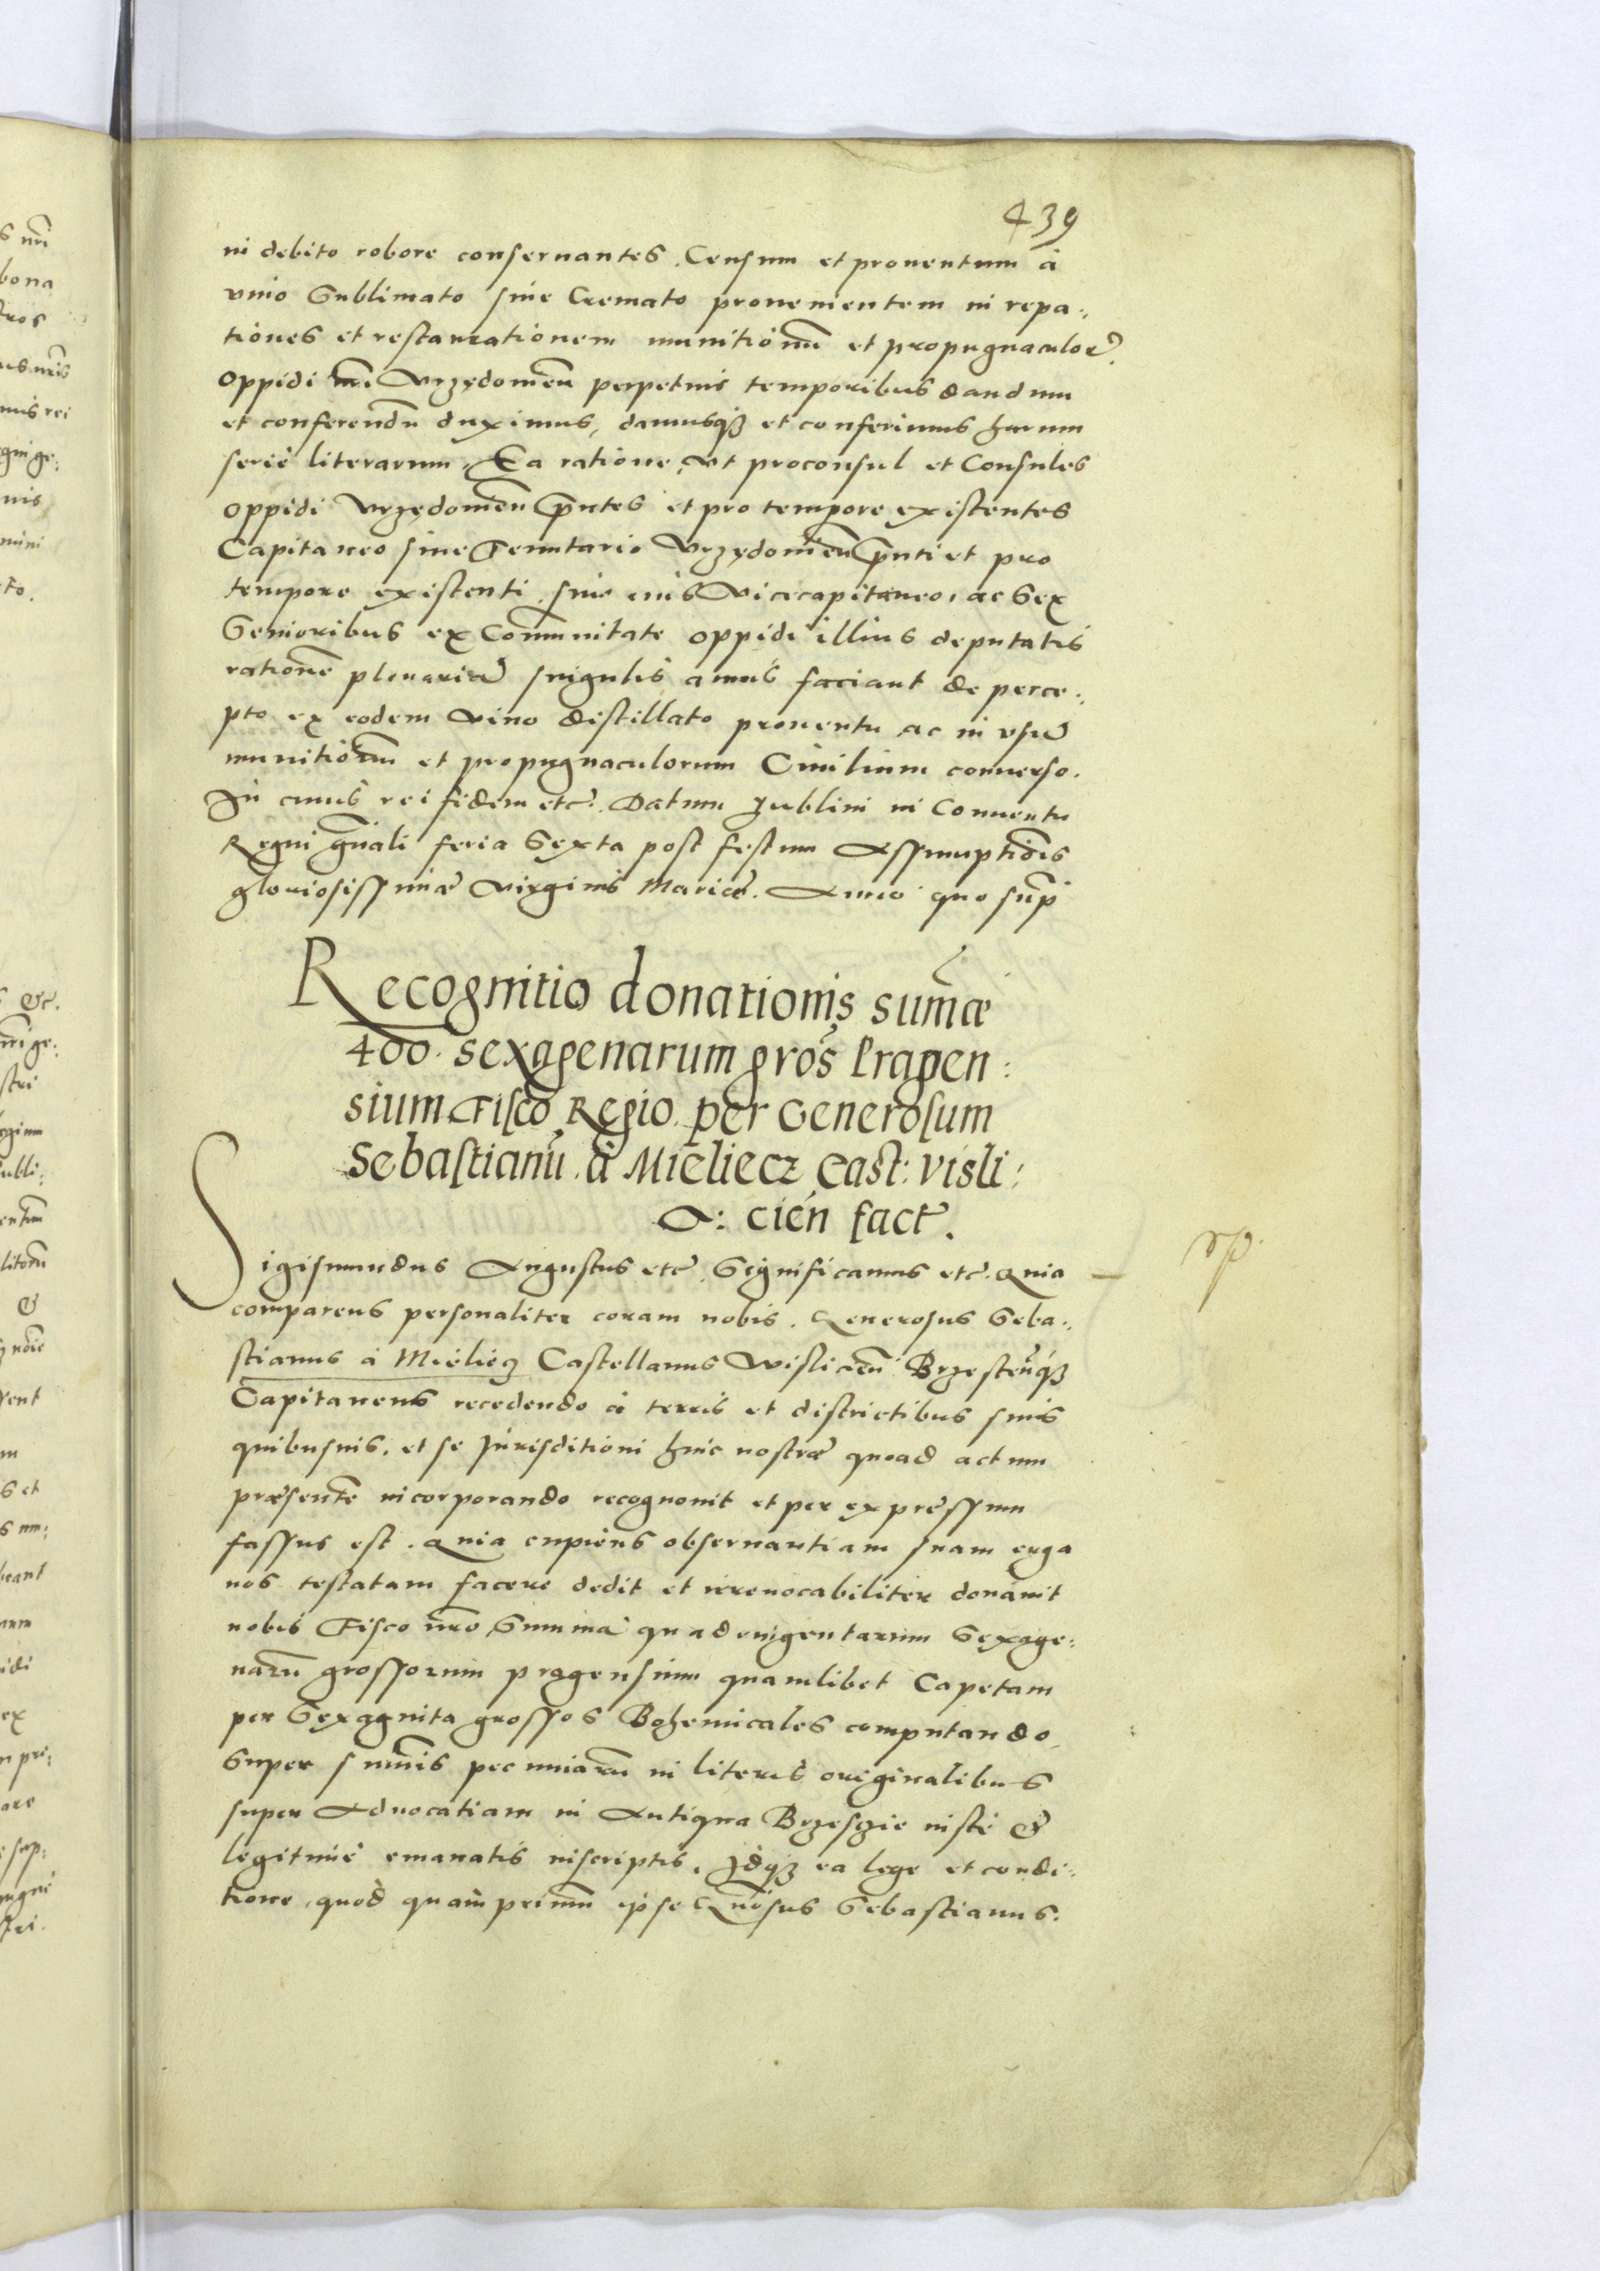 439
in debito robore conseruantes. Censum et prouentum à
vino Sublimato siue Cremato prouenientem in repa:
tiones et restaurationem munitionũ et propugnaculorũ
Oppidi nri Vrzędomeñ perpetuis temporibus dandum
et conferendũ duximus, damusq3 et conferimus harum
serie literarum. Ea ratione, vt proconsul et Consules
oppidi Vrzędomeñ pñtes et pro tempore existentes
Capitaneo siue Tenutario Vrzędomieñ pñti et pro
tempore existenti, siue eius Vicecapitaneo, ac Sex
Senioribus ex Cõmunitate oppidi illius deputatis
rationẽ plenariã singulis annis faciant de perce:
pto ex eodem vino distillato prouentu ac in vsũ
munitionũ et propugnaculorum Ciuilium conuerso.
In cuius rei fidem etc. Datum Lublini in Conuentu
Regni gñali feria Sexta post festum Assumptiõis
gloriosissimæ Virginis Mariæ. Anno quo supˀ
Recognitio donationis sum̃æ
400. sexagenarum gros̃ Pragen:
sium Fisco Regio per Generosum
Sebastianũ à Mieliecz Cast: Visli:
cień fact̃.
Sigismundus Augustus etc̃. Significamus etc̃. Quia
comparens personaliter coram nobis. Generosus Seba:
stianus à Mieliecz Castellanus Wislicieñ Brzesteñq3
Capitaneus recedendo à terris et districtibus suis
quibusuis, et se Jurisditioni huic nostræ quoad actum
præsentẽ incorporando recognouit et per expressum
fassus est. Quia cupiens obseruantiam suam erga
nos testatam facere dedit et irreuocabiliter donauit
nobis Fisco nr̃o Summã quadringentarum Sexage:
narũ grossorum pragensium quamlibet Capetam
per Sexaginta grossos Bohemicales computando
Super sum̃is pecuniarũ in literis originalibus
super Aduocatiam in Antiqua Brzesczie iuste &
legitimè emanatis inscriptis. Idq3 ea lege et condi:
tione, quod quamprimum ipse Gñosus Sebastianus.